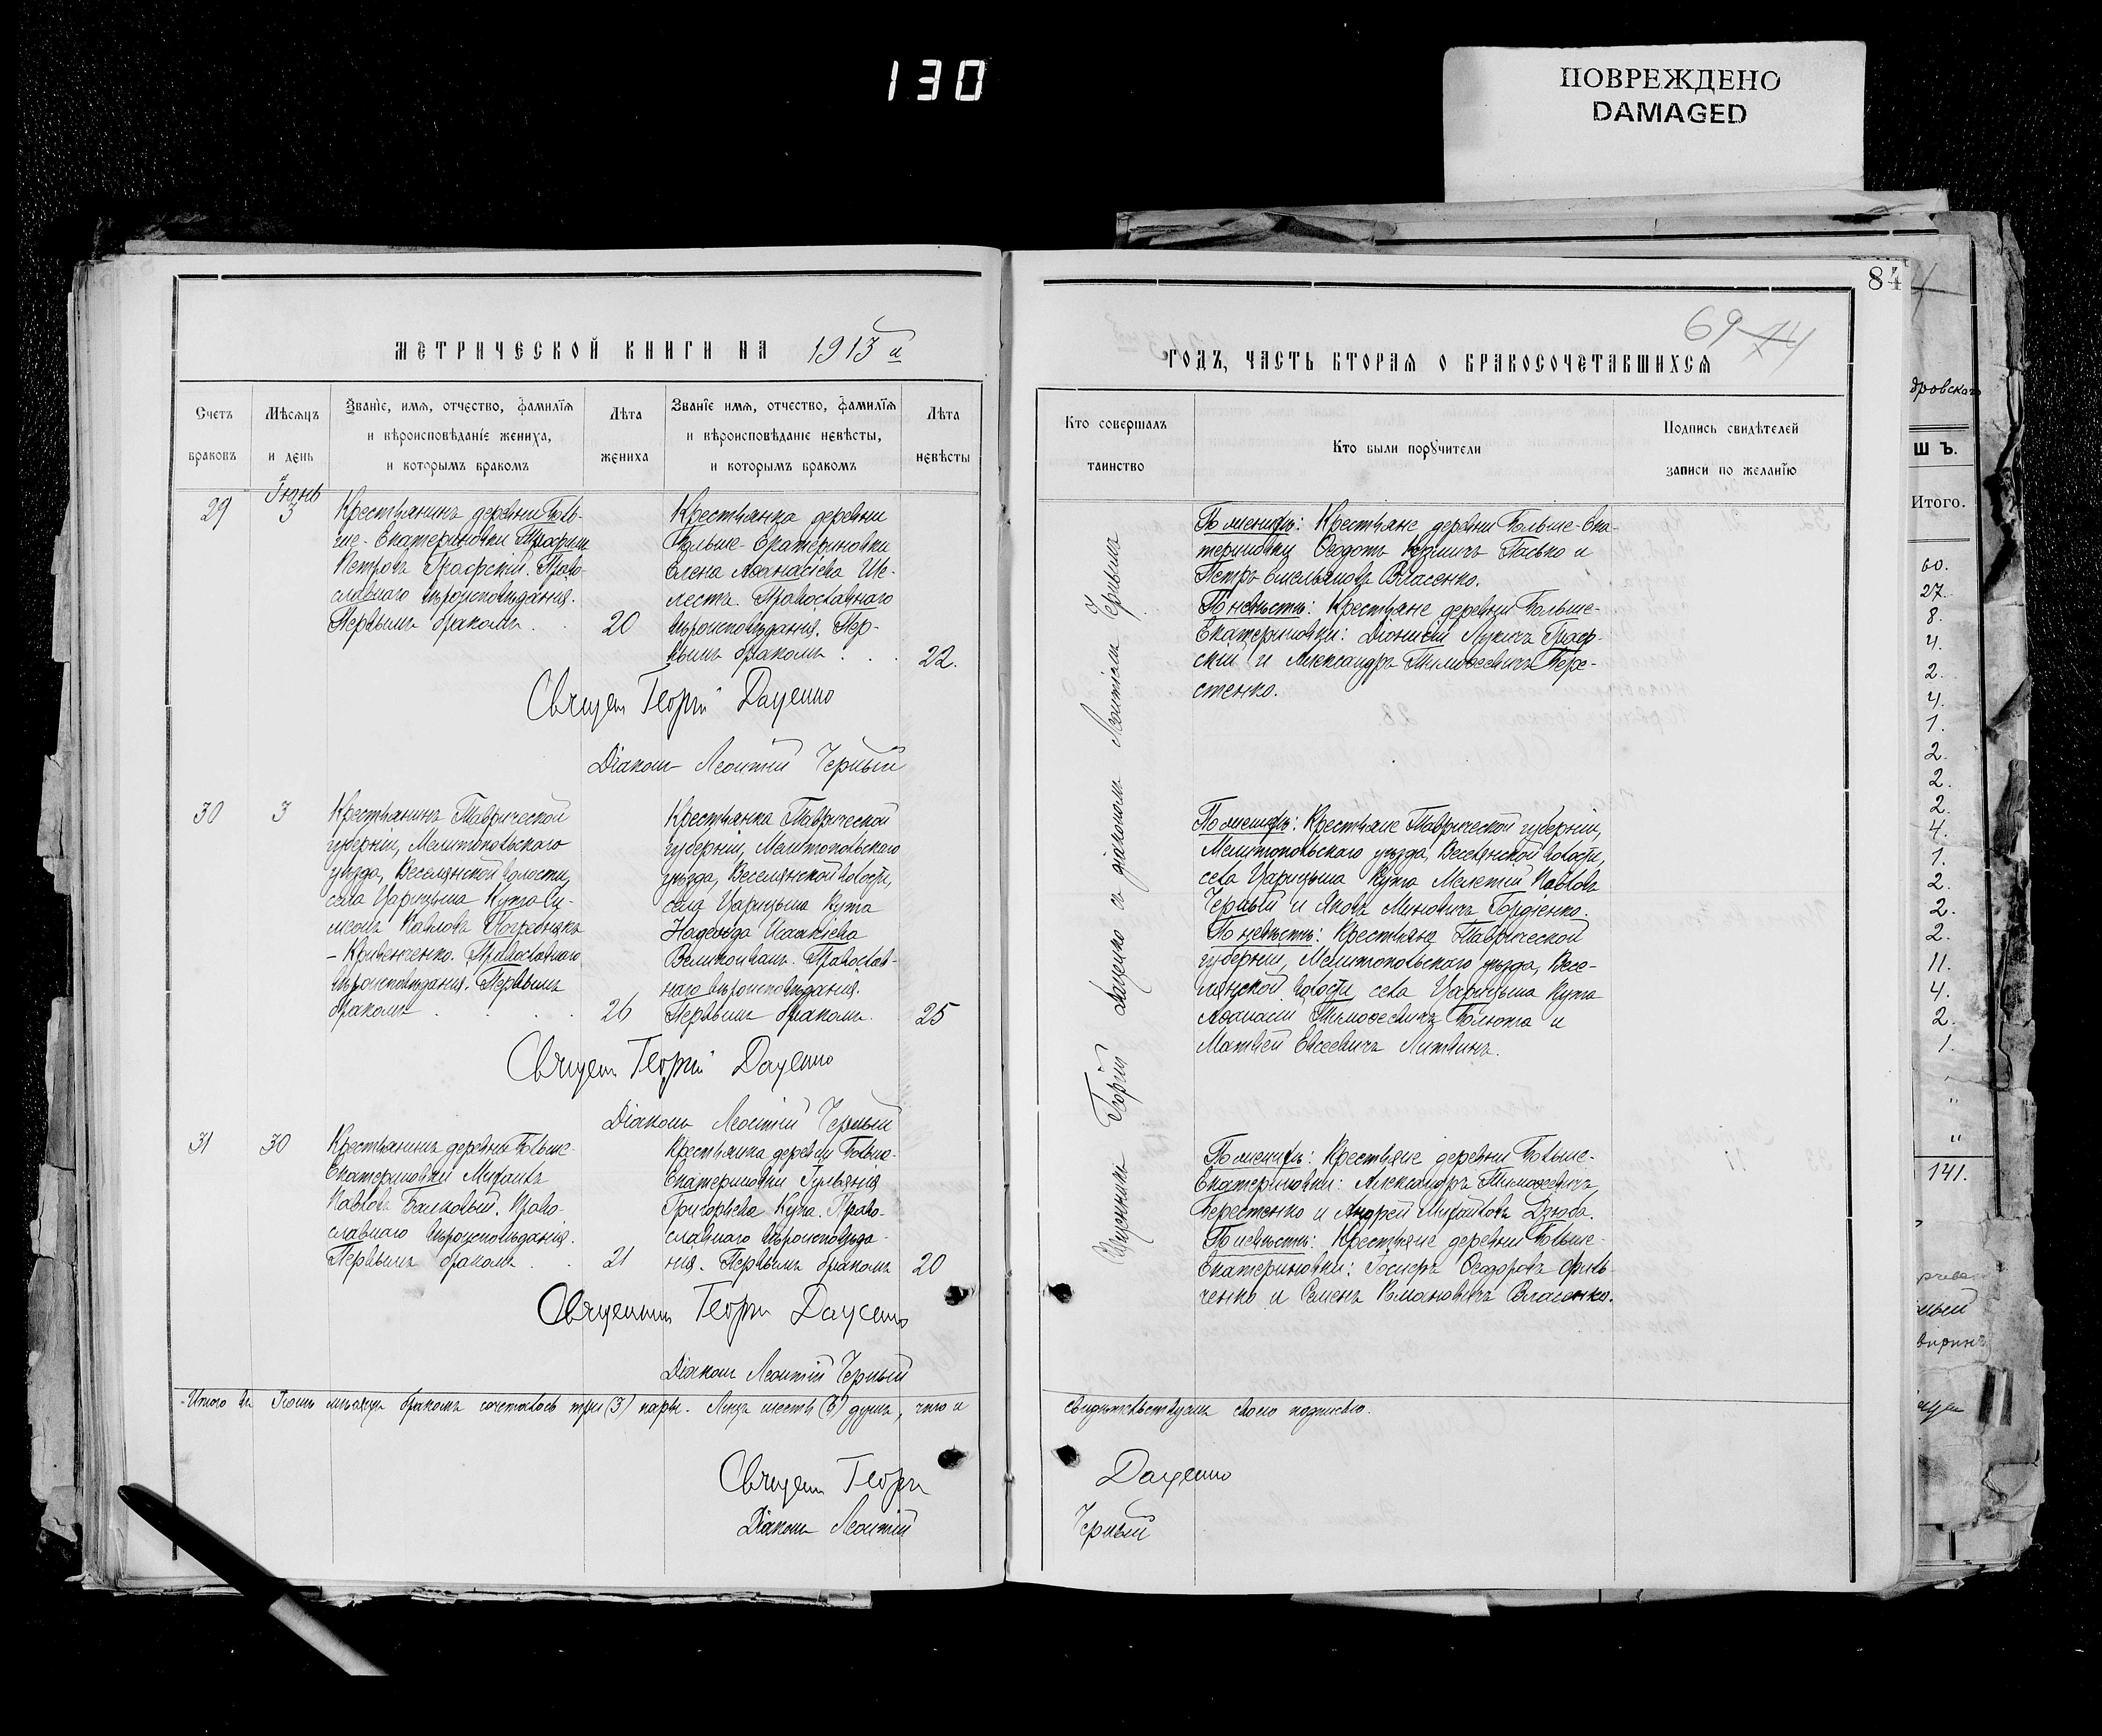 130
ПОВРЕЖДЕНО
DAMAGED
МЕТРИЧЕСКОЙ КНИГИ НА 1913й
Счетъ браковъ
Мѣсяцъ и день
Званіе, имя, отчество, фамилія и вѣроисповѣданіе жениха, и которымъ бракомъ
Лѣта жениха
Званіе имя, отчество, фамилія и вѣроисповѣданіе невѣсты, и которымъ бракомъ
Лѣта невѣсты
29
Іюнь
3
Крестьянинъ деревни Боль-
ше-Екатериновки Трофим
Петровъ Граофскій. Право-
славнаго вѣроисповѣданія.
Первымъ бракомъ
20
Крестьянка деревни
Больше-Екатериновки
Елена Аѳанасіева Ше-
лестъ. Православнаго
вѣроисповѣданія. Пер-
вымъ бракомъ
22.
Священ Георгій Даценко
Діаконъ Леонтій Черный
30
3
Крестьянинъ Таврической
губерніи, Мелитопольскаго
уѣзда, Веселянской волости,
села Царицына Кута Си-
меонъ Павловъ Погребнякъ
- Кривенченко. Православнаго
вѣроисповѣданія. Первымъ
бракомъ
26
Крестьянка Таврической
губерніи, Мелитопольскаго
уѣзда, Веселянской волости,
села Царицына Кута
Надежда Исакіева
Великоиванъ. Православ-
наго вѣроисповѣданія.
Первымъ бракомъ.
25
Священ Георгій Даценко
Діаконъ Леонтій Черный
31
30
Крестьянинъ деревни Больше-
Екатериновки Михаилъ
Павловъ Балковый. Право-
славнаго вѣроисповѣданія.
Первымъ бракомъ
21
Крестьянка деревни Больше-
Екатериновки Гульянія
Григорьева Куца. Право-
славнаго вѣроисповѣда-
нія. Первымъ бракомъ
20
Священникъ Георгій Даценко
Діаконъ Леонтій Черный
Итого въ Іюнь мѣсяцѣ бракомъ сочеталось три (3) пары. Лицъ шесть (6) душъ, что и
Священ Георгій
Діаконъ Леонтій
84
69 74
ГОДЪ, ЧАСТЬ ВТОРАЯ О БРАКОСОЧЕТАВШИХСЯ
Кто совершалъ таинство
Кто были поручители
Подпись свидѣтелей записи по желанію
Священникъ Георгій Даценко съ діакономъ Леонтіемъ Чернымъ
По женихѣ: Крестьяне деревни Больше-Ека-
териновки Ѳеодотъ Кузмичъ Пасько и
Петръ Емельяновъ Власенко.
По невѣстѣ: Крестьяне деревни Больше-
Екатериновки: Діонисій Лукичъ Граор-
скій и Александръ Тимоѳеевичъ Бере-
стенко.
По женихѣ: Крестьяне Таврической губерніи,
Мелитопольскаго уѣзда, Веселянской волости,
села Царицына Кута Мелетій Павловъ
Черный и Яковъ Миновичъ Гордіенко.
По невѣстѣ: Крестьяне Таврической
губерніи, Мелитопольскаго уѣзда, Весе-
лянской волости села Царицына Кута
Аѳанасій Тимоѳеевичъ Болюта и
Матвей Евсеевичъ Литвинъ.
По женихѣ: Крестьяне деревни Больше-
Екатериновки: Александръ Тимоѳеевичъ
Берестенко и Андрей Михайловъ Дзюба.
По невѣстѣ: Крестьяне деревни Больше-
Екатериновки: Іосифъ Ѳеодоровъ Филь-
ченко и Семенъ Романовичъ Власенко.
свидѣтельствуемъ своею подписью.
Даценко
Черный
дровскаго
ШЪ.
Итого.
60.
27.
8.
4.
2.
4.
1.
2.
2.
2.
4.
1.
2.
2.
2.
11.
4.
2.
1.
"
"
"
141.